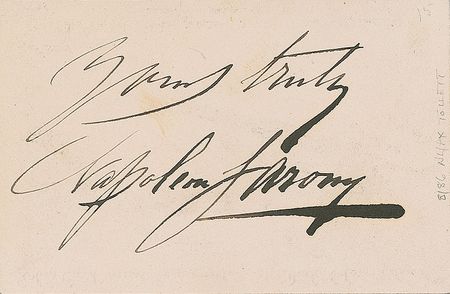 Yours truly
Napoleon Sarony
8/86 NLAX TOLLETT